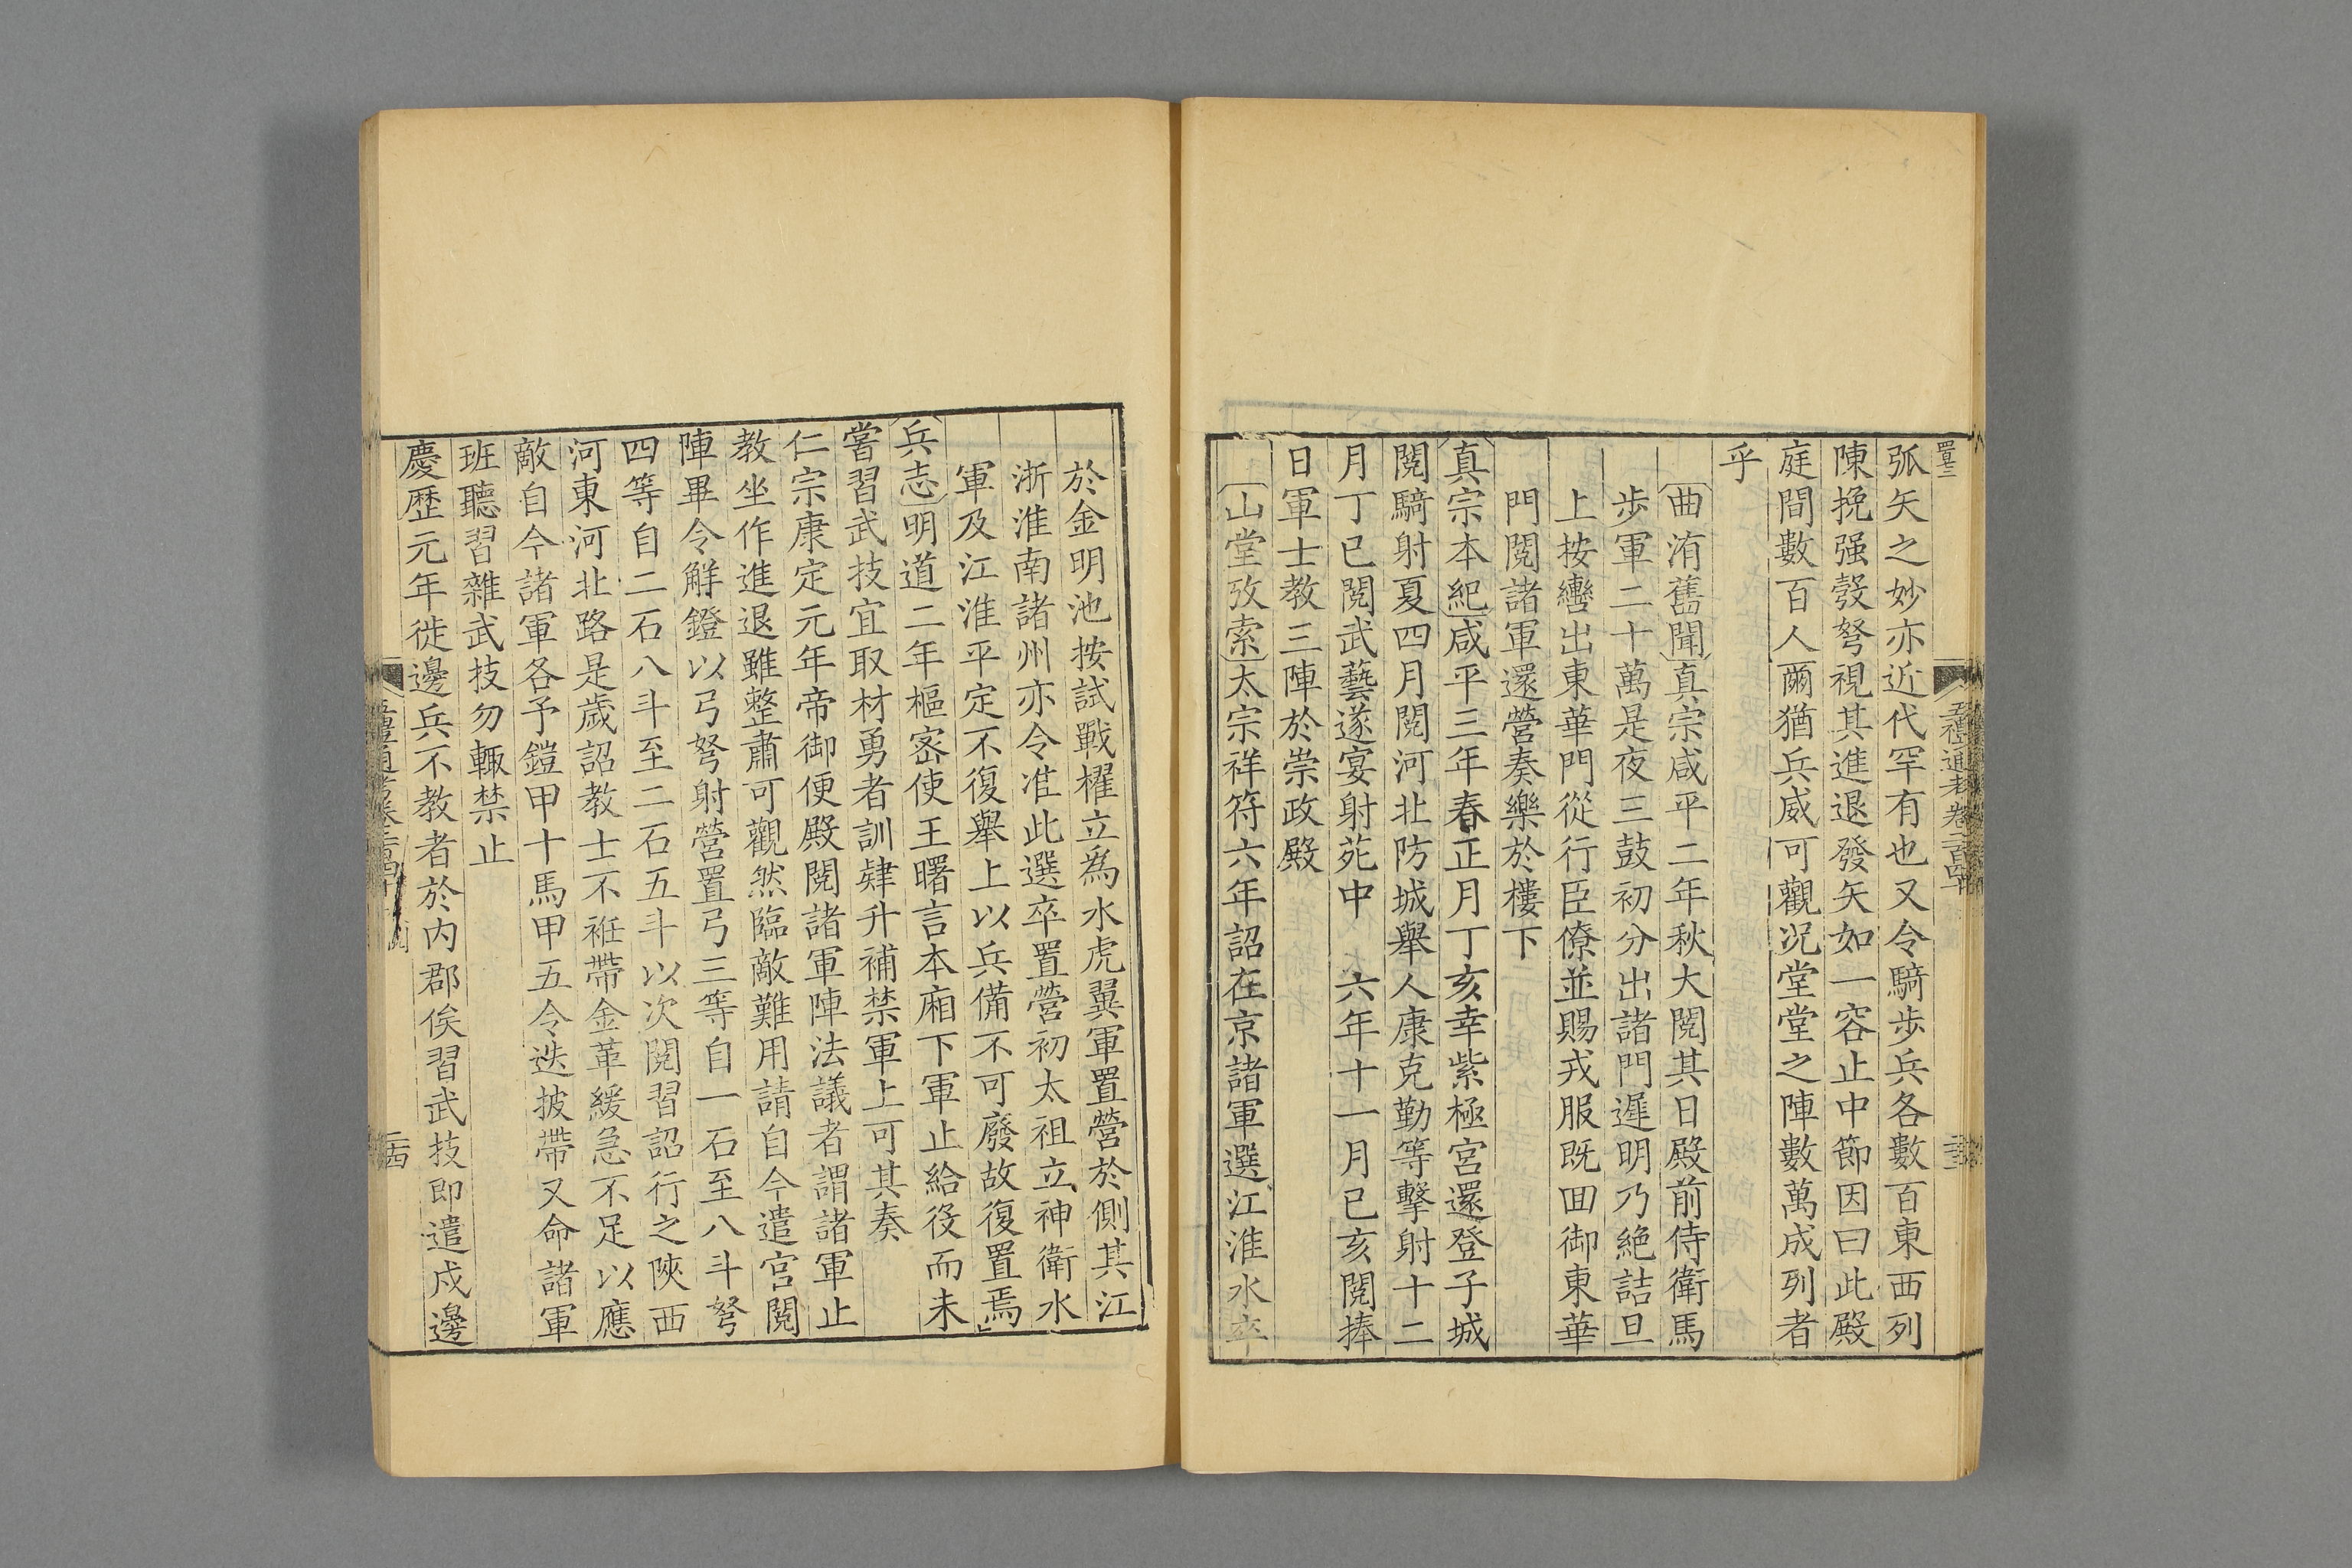 弧矢之妙亦近代罕有也又令騎歩兵各數百東西列
陳挽强彀弩視其進退發矢如一容止中節因曰此殿
庭間數百人爾猶兵威可觀况堂堂之陣數萬成列者
乎
曲洧舊聞真宗咸平二年秋大閱其日殿前侍衛馬
歩軍二十萬是夜三鼓初分出諸門遲明乃絶詰旦
上按轡出東華門從行臣僚並賜戎服既囬御東華
門閱諸軍還營奏樂於樓下
真宗本紀咸平三年春正月丁亥幸紫極宮還登子城
閱騎射夏四月閱河北防城舉人康克勤等擊射十二
月丁已閱武藝遂宴射苑中　六年十一月已亥閱捧
日軍士教三陣於崇政殿
山堂攷索太宗祥符六年詔在京諸軍選江淮水卒
於金明池按試戰櫂立為水虎翼軍置營於側其江
浙淮南諸州亦令准此選卒置營初太祖立神衛水
軍及江淮平定不復舉上以兵備不可廢故復置焉
兵志明道二年樞宻使王曙言本廂下軍止給役而未
嘗習武技宜取材勇者訓肄升補禁軍上可其奏
仁宗康定元年帝御便殿閱諸軍陣法議者謂諸軍止
教坐作進退雖整肅可觀然臨敵難用請自今遣官閱
陣畢令解鐙以弓弩射營置弓三等自一石至八斗弩
四等自二石八斗至二石五斗以次閱習詔行之陝西
河東河北路是歲詔教士不袵帶金革緩急不足以應
敵自今諸軍各予鎧甲十馬甲五令迭披帶又命諸軍
班聽習雜武技勿輙禁止
慶歷元年徙邊兵不教者於內郡俟習武技即遣戍邊
五禮通考卷二百四十
二十三
二十四